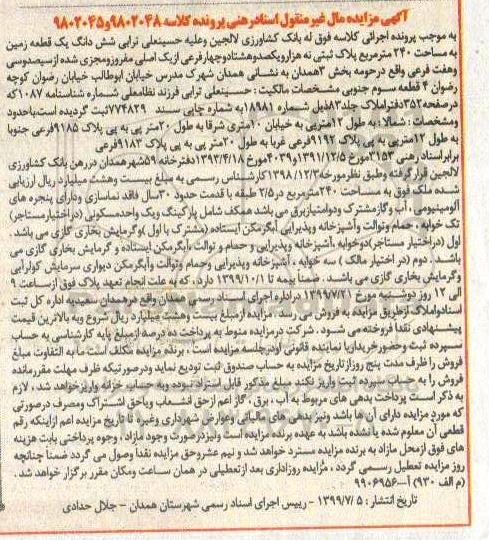 آگهی مزایده مال غیر منقول اسناد رهنی پرونده کلاسه ۹۸۰۲۰۴۸و۹۸۰۲۰۴۵
به موجب پرونده اجرائی کلاسه فوق له بانک کشاورزی لالجین وعلیه حسینعلی ترابی شش دانگ یک قطعه زمین
به مساحت ۲۴۰ مترمربع پلاک ثبتی نه هزارویکصدوهشتادوچهارفرعی ازیک اصلی مفروزومجزی شده ازسیصدوسی
وهفت فرعی واقع درحومه بخش ۳همدان به نشانی همدان شهرک مدرس خیابان ابوطالب خیابان رضوان کوچه
رضوان ۴ قطعه سوم جنوبی مشخصات مالکیت : حسینعلی ترابی فرزند نظامعلی شماره شناسنامه ۱۰۸۷که
درصفحه ۳۵۲دفتراملاک جلد۸۲ذیل شماره ۱۸۹۸۱به شماره چاپی سند ۷۷۴۸۲۹ثبت گردیده است باحدود
ومشخصات : شمالا : به طول ۱۲مترپی به خیابان ۱۰متری شرقا به طول ۲۰متر پی به پی پلاک ۹۱۸۵فرعی جنوبا
به طول ۱۲مترپی به پی پلاک ۹۱۹۲فرعی غربا به طول ۲۰متر پی به پی پلاک ۹۱۸۳فرعی
برابراسناد رهنی ۳۱۵۳مورخ ۱۳۹۱/۱۲/۵و۴۰۳۹مورخ ۱۳۹۳/۴/۱۸دفترخانه ۵۹شهرهمدان دررهن بانک کشاورزی
لالجین قرارگرفته وطبق نظرمورخه ۱۳۹۸/۱۲/۳کارشناس رسمی به مبلغ بیست وهشت میلیارد ریال ارزیابی
شده ملک فوق به مساحت ۲۴۰مترمربع در۲/۵ طبقه با قدمت حدود ۳۰سال فاقد نماسازی ودارای پنجره های
آلومینیومی ، آب وگازمشترک ودوامتیازبرق می باشد همکف شامل پارکینگ ویک واحدمسکونی (دراختیارمستاجر)
تک خوابه ، حمام وتوالت وآشپزخانه وپذیرایی آبگرمکن ایستاده (مشترک با اول )وگرمایش بخاری گازی می باشد
اول (دراختیار مستاجر)دوخوابه ،آشپزخانه وپذیرایی و حمام و توالت ،آبگرمکن ایستاده و گرمایش بخاری گازی می
باشد . دوم (در اختیار مالک ) سه خوابه ، آشپزخانه وپذیرایی وحمام وتوالت وآبگرمکن دیواری سرمایش کولرآبی
وگرمایش بخاری گازی می باشد . ضمنا بیمه تا ۱۳۹۹/۱۰/۱ دارد . که به علت انجام تعهد پلاک فوق ازساعت ۹
الی ۱۲ روز دوشنبه مورخ ۱۳۹۹/۷/۲۱ دراداره اجرای اسناد رسمی همدان واقع درهمدان سعیدیه اداره کل ثبت
اسنادواملاک ازطریق مزایده به فروش می رسد . مزایده ازمبلغ بیست وهشت میلیارد ریال شروع وبه بالاترین قیمت
پیشنهادی نقدا فروخته می شود . شرکت درمزایده منوط به پرداخت ده درصد ازمبلغ پایه کارشناسی به حساب
سپرده ثبت وحضورخریداریا نماینده قانونی اودرجلسه مزایده است . برنده مزایده مکلف است ما به التفاوت مبلغ
فروش را ظرف مدت پنج روزازتاریخ مزایده به حساب صندوق ثبت تودیع نماید ودرصورتیکه ظرف مهلت مقررمانده
فروش را به حساب سپرده ثبت واریز نکند مبلغ مذکور قابل استرداد نبوده وبه حساب خزانه واریزخواهد شد . لازم
به ذکر است پرداخت بدهی های مربوط به آب ، برق ، گاز اعم ازحق انشعاب ویاحق اشتراک ومصرف درصورتی
که مورد مزایده دارای آن ها باشد ونیز بدهی های مالیاتی وعوارض شهرداری وغیره تا تاریخ مزایده اعم ازاینکه رقم
قطعی آن معلوم شده یا نشده باشد به عهده برنده مزایده است ونیزدرصورت وجود مازاد ، وجوه پرداختی بابت هزینه
های فوق ازمحل مازاد به برنده مزایده مسترد خواهد شد و نیم عشروحق مزایده نقدا وصول می گردد ضمنا چنانچه
روز مزایده تعطیل رسمی گردد ، مزایده روزاداری بعد ازتعطیلی در همان ساعت ومکان مقرر برگزار خواهد شد .
(م الف ۹۳۰) آ-۹۹۰۶۹۵۶
تاریخ انتشار : ۱۳۹۹/۷/۵ - رییس اجرای اسناد رسمی شهرستان همدان - جلال حدادی